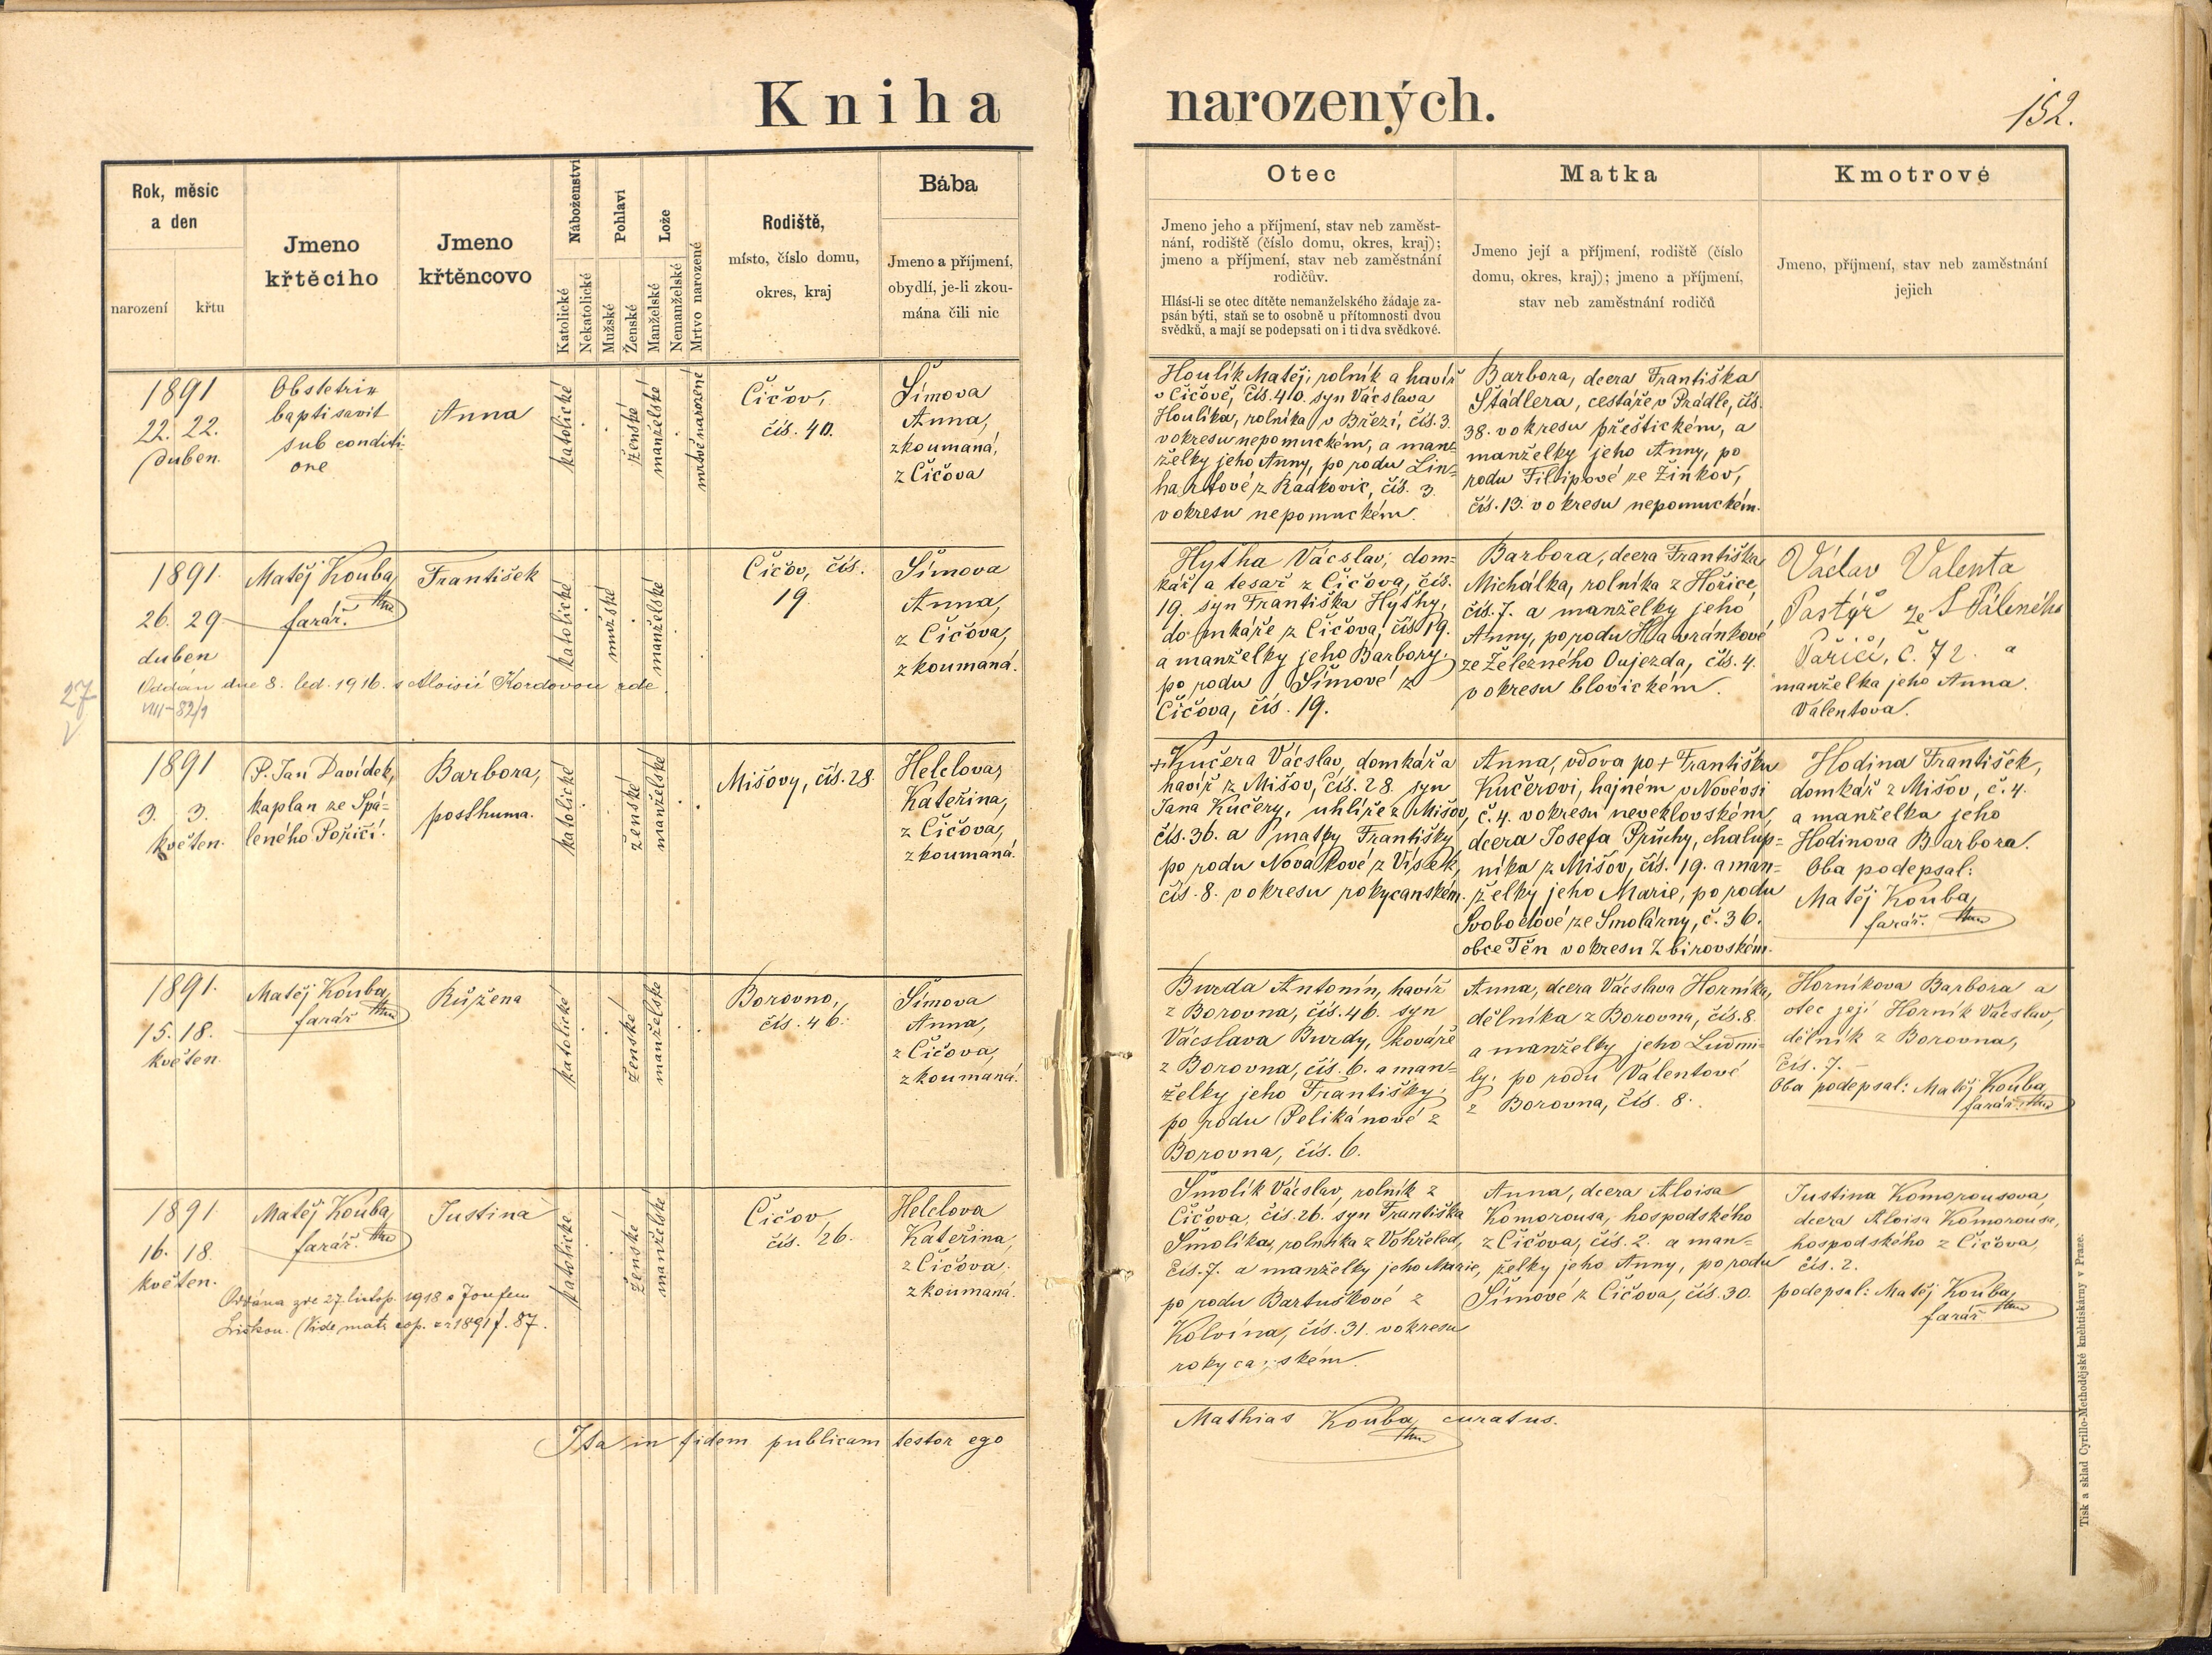 Kniha narozených.
152.
Rok, měsíc
a den
narození
křtu
Jmeno
křtěcího
Jmeno
křtěncovo
Náboženství
Katolické
Nekatolické
Pohlaví
Mužské
Ženské
Lože
Manželské
Nemanželské
Mrtvo narozené
Rodiště,
místo, číslo domu,
okres, kraj
Bába
Jmeno a příjmení,
obydlí, je-li zkou-
mána čili nic
Otec
Jmeno jeho a příjmení, stav neb zaměst-
nání, rodiště (číslo domu, okres, kraj);
jmeno a příjmení, stav neb zaměstnání
rodičův.
Hlásí-li se otec dítěte nemanželského žádaje za-
psán býti, staň se to osobně u přítomnosti dvou
svědků, a mají se podepsati on i ti dva svědkové.
Matka
Jmeno její a příjmení, rodiště (číslo
domu, okres, kraj); jmeno a příjmení,
stav neb zaměstnání rodičů
Kmotrové
Jmeno, příjmení, stav neb zaměstnání
jejich
1891
22. 22.
duben.
Obstetrix
baptisavit
sub conditi
one
Anna
katolické
ženské
manželské
mrtvě narozené
Čičov,
čís. 40.
Šímova
Anna,
zkoumaná,
z Čičova
Houlík Matěj, rolník a havíř
v Čičově, čís. 40. syn Václava
Houlíka, rolníka v Březí, čís. 3.
v okresu nepomuckém, a man=
želky jeho Anny, po rodu Lin=
hartové z Radkovic, čís. 3.
v okresu nepomuckém.
Barbora, dcera Františka
Štádlera, cestáře v Prádle, čís.
38. v okresu přeštickém, a
manželky jeho Anny, po
rodu Filipové ze Žinkov,
čís. 13. v okresu nepomuckém.
1891.
26. 29
duben
Matěj Kouba,
farář.
František
katolické
mužské
manželské
Čičov, čís.
19.
Šímova
Anna,
z Čičova,
zkoumaná.
Oddán dne 8. led. 1916. s Aloisií Kordovou zde.
VIII-82/1
27
V
Hytha Václav, dom=
kář a tesař z Čičova, čís.
19. syn Františka Hythy,
domkáře z Čičova, čís 19.
a manželky jeho Barbory,
po rodu Šímové z
Čičova, čís. 19.
Barbora, dcera Františka
Michálka, rolníka z Hořice,
čís. 7. a manželky jeho
Anny, po rodu Havránkové
ze Železného Oujezda, čís. 4.
v okresu blovickém.
Václav Valenta
Pastýř ze S Páleného
Pařičí, č. 72. a
manželka jeho Anna
Valentova.
1891
3. 3.
květen.
P. Jan Davídek,
kaplan ze Spá=
leného Poříčí.
Barbora,
posthuma.
katolické
ženské
manželské
Mišovy, čís. 28.
Helclova,
Kateřina,
z Čičova,
zkoumaná.
+Kučera Václav, domkář a
havíř z Mišov, čís. 28. syn
Jana Kučery, uhlíře z Mišov,
čís. 36. a matky Františky
po rodu Novákové z Vísek,
čís. 8. v okresu rokycanském.
Anna, vdova po + Františku
Kučerovi, hajném v Novévsi
č. 4. v okresu neveklovském,
dcera Josefa Průchy, chalup=
níka z Mišov, čís. 19. a man=
želky jeho Marie, po rodu
Svobodové ze Smolárny, č. 36.
obce Těn v okresu Zbirovském.
Hodina František,
domkář z Mišov, č. 4.
a manželka jeho
Hodinova Barbora.
Oba podepsal:
Matěj Kouba,
farář.
1891.
15. 18.
květen.
Matěj Kouba,
farář
Růžena
katolické
ženské
manželské
Borovno,
čís. 46.
Šímova
Anna,
z Čičova,
zkoumaná.
Burda Antonín, havíř
z Borovna, čís. 46. syn
Václava Burdy, kováře
z Borovna, čís. 6. a man=
želky jeho Františky,
po rodu Pelikánové z
Borovna, čís. 6.
Anna, dcera Václava Horníka,
dělníka z Borovna, čís. 8.
a manželky jeho Ludmi=
ly, po rodu Valentové
z Borovna, čís. 8.
Horníkova Barbora a
otec její Horník Václav,
dělník z Borovna,
čís. 7.
Oba podepsal: Matěj Kouba,
farář.
1891.
16. 18.
květen.
Matěj Kouba,
farář.
Justina
katolické
ženské
manželské
Čičov
čís. 26.
Helclova
Kateřina,
z Čičova.
zkoumaná.
Oddána zde 27. listop. 1918 s Josefem
Liškou. (Vide matr. cop. z r 1891 f. 87.
Smolík Václav, rolník z
Čičova, čís. 26. syn Františka
Smolíka, rolníka z Vohřeled,
čís. 7. a manželky jeho Marie,
po rodu Bartuškové z
Kolvína, čís. 31. v okresu
rokycanském.
Anna, dcera Aloisa
Komorousa, hospodského
z Čičova, čís. 2. a man=
želky jeho Anny, po rodu
Šímové z Čičova, čís. 30.
Justina Komorousová,
dcera Aloisa Komorousa,
hospodského z Čičova,
čís. 2.
podepsal: Matěj Kouba,
farář
Ita in fidem publicam testor ego
Mathias Kouba, curatus.
Tisk a sklad Cyrillo-Methodějské knihtiskárny v Praze.